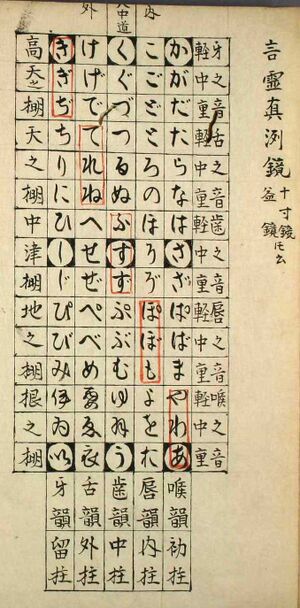 言靈真洌鏡
十寸鏡
益鏡トモ云
内
大中道
外
牙之音舌之音歯之音唇之音喉之音
軽中重軽中重軽中重軽中重軽中重
かがだたらなはさざぱばまやわあ
喉韻初柱
こごどとろのほそぞぽぼもよをお
唇韻内柱
くぐづつるぬふすずぷぶむゆ う
歯韻中柱
けげでてれねへせぜぺべめ ゑ衣
舌韻外柱
きぎぢちりにひしじぴびみ伊ゐ以
牙韻留柱
高天之棚天之棚中津棚地之棚根之棚